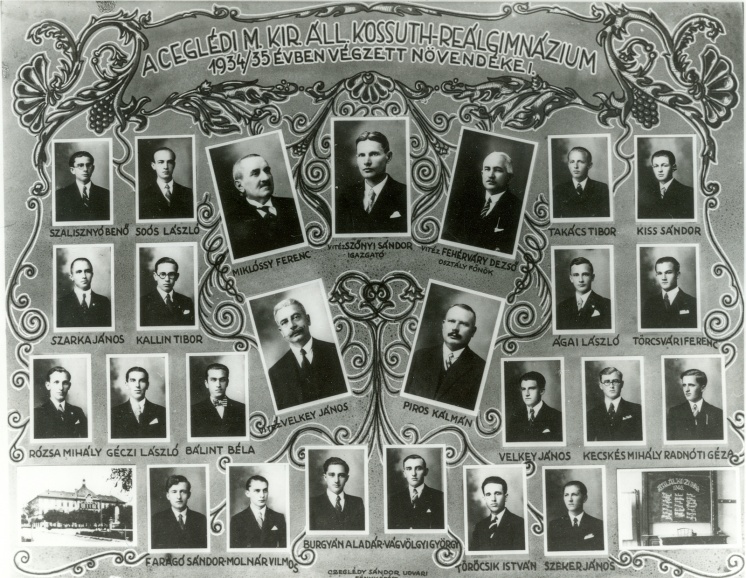 A CEGLÉDI M. KIR. ÁLL. KOSSUTH-REÁLGIMNÁZIUM
1934/35 ÉVBEN VÉGZETT NÖVENDÉKEI.
SZALISZNYÓ BENŐ
SOÓS LÁSZLÓ
MIKLÓSSY FERENC
VITÉZ SZŐNYI SÁNDOR
IGAZGATÓ
VITÉZ FEHÉRVÁRY DEZSŐ
OSZTÁLYFŐNÖK
TAKÁCS TIBOR
KISS SÁNDOR
SZARKA JÁNOS
KALLIN TIBOR
ÁGAI LÁSZLÓ
TÖRCSVÁRI FERENC
VITÉZ VELKEY JÁNOS
PIROS KÁLMÁN
RÓZSA MIHÁLY
GÉCZI LÁSZLÓ
BÁLINT BÉLA
VELKEY JÁNOS
KECSKÉS MIHÁLY
RADNÓTI GÉZA
FARAGÓ SÁNDOR-MOLNÁR VILMOS
BURGYÁN ALADÁR-VÁGVÖLGYI GYÖRGY
TÖRÖCSIK ISTVÁN
SZEKER JÁNOS
CZEGLÉDY SÁNDOR UDVARI